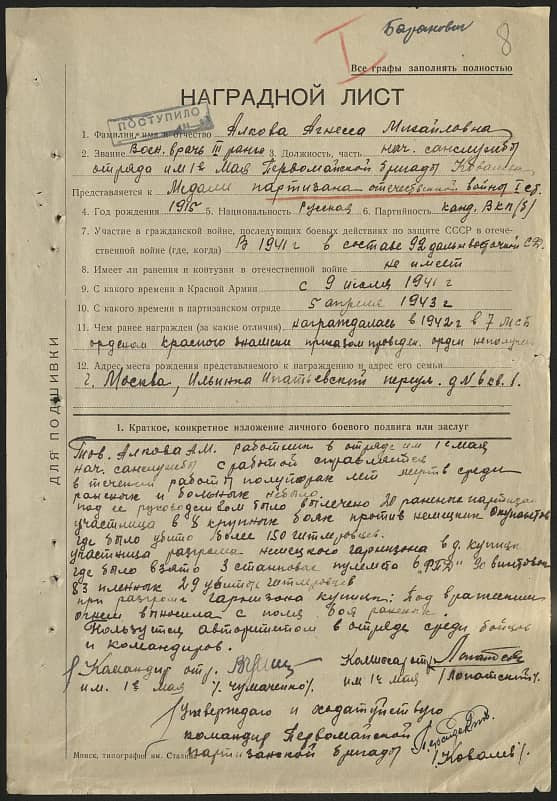 Баранович
I
8
Все графы заполнять полностью
НАГРАДНОЙ ЛИСТ
ПОСТУПИЛО
1. Фамилия, имя и отчество Алкова Агнесса Михайловна
2. Звание Воен. врач III ранга 3. Должность, часть нач. санслужбы
отряда им 1го Мая Первомайской бригады
Представляется к Медали партизана отечественной войны I ст.
4. Год рождения 1915 5. Национальность Русская 6. Партийность канд. ВКП(б)
7. Участие в гражданской войне, последующих боевых действиях по защите СССР в отече-
ственной войне (где, когда) В 1941 г в составе 92 дальневосточной
8. Имеет ли ранения и контузии в отечественной войне не имеет
9. С какого времени в Красной Армии с 9 июля 1941 г
10. С какого времени в партизанском отряде 5 апреля 1943 г
11. Чем ранее награжден (за какие отличия) награждалась в 1942 г в 7
орденом Красного знамени приказом проведен. орден не получен
12. Адрес места рождения представляемого к награждению и адрес его семьи
г. Москва, Ильинка Ипатьевский переул. д № 6 кв. 1.
ДЛЯ ПОДШИВКИ
1. Краткое, конкретное изложение личного боевого подвига или заслуг
Тов. Алкова А.М. работник в отряде им 1го мая
нач. санслужбы с работой справляется
в течении работы полуторах лет мертв среди
раненых и больных небыло.
под ее руководством было вылечено 20 раненых партизан
участница в 8 крупных боях против немецких окупантов
где было убито более 150 гитлеровцев.
участница разгрома немецкого гарнизона в д. купицк
где было взято 3 становых пулемета 6 "РПД" 90 винтовок
83 пленных 29 убитых гитлеровцев
при разгроме гарнизона купицк: под вражеским
огнем выносила с поля боя раненых.
Пользуется авторитетом в отряде среди бойцов
и командиров.
Командир отр. Комиссар отр
им. 1го мая /Чумаченко/. им 1го мая /Лопатский/
Утверждаю и ходатайствую
командир Первомайской
партизанской бригады /Ковалев/
Минск, типография им. Сталина